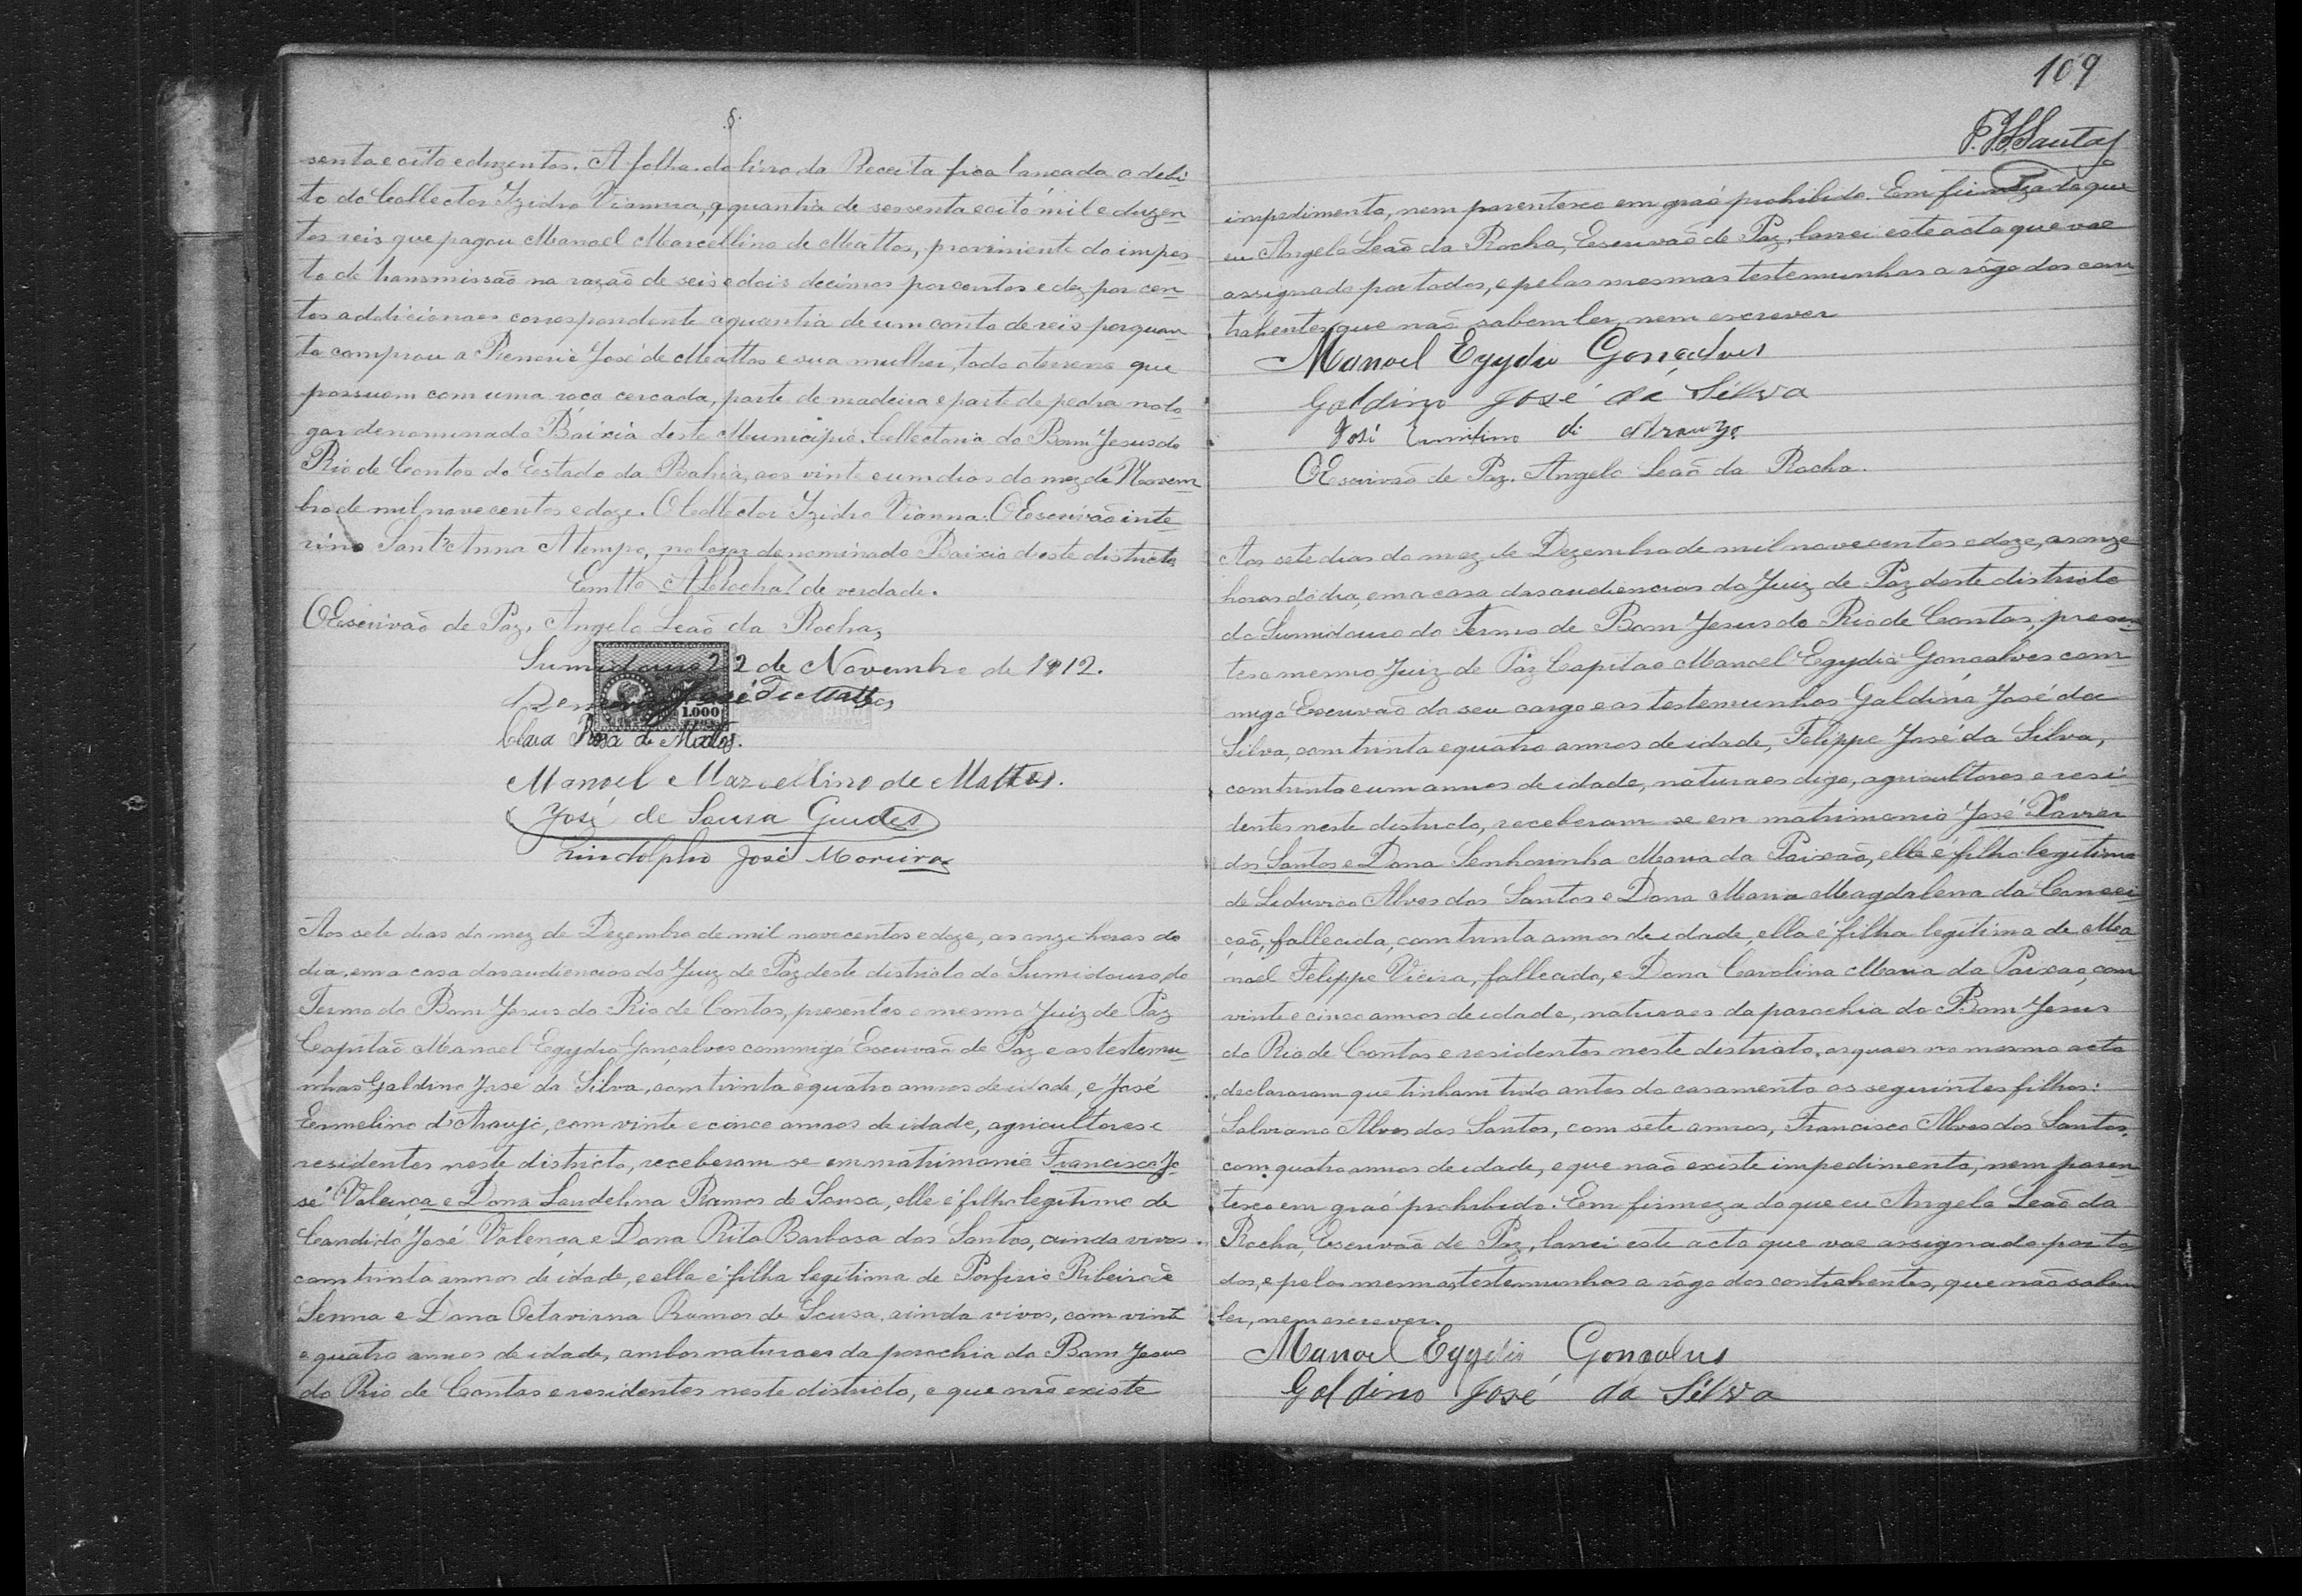 §.
senta e oito e duzentos. A folha do livro da Receita fica lançada a debi-
to do Collector Izidro Vianna, a quantia de sessenta e oito mil e duzen-
tos reis que pagou Manoel Marcellino de Mattos, proviniente do impos-
to de transmissão na razão de seis e dois decimos por centos e dez por cen-
tos addicionaes correspondente a quantia de um conto de reis porquan-
to comprou a José de Mattos e sua mulher, todo o terreno que
possuem com uma roça cercada, parte de madeira e parte de pedra no lo-
gar denominado Baixia deste Municipio. Collectoria do Bom Jesus do
Rio de Contas do Estado da Bahia, aos vinte e um dias do mez de Novem-
bro de mil novecentos e doze. O Collector Izidro Vianna. O Escrivão inte-
rino Sant'Anna A tempo, no logar denominado Baixia deste districto
Em tto ARocha de verdade.
O Escrivão de Paz, Angelo Leão da Rocha,
Sumidouro 22 de Novembro de 1912.
José de Mattos
1.000
Clara Rosa de Mattos.
Manoel Marcellino de Mattos.
José de Sousa Guedes
Lindolpho José Moreira
Aos sete dias do mez de Dezembro de mil novecentos e doze, as onze horas do
dia, em a casa das audiencias do Juiz de Paz deste districto do Sumidouro, do
Termo do Bom Jesus do Rio de Contas, presentes o mesmo Juiz de Paz
Capitão Manoel Egydio Gonçalves commigo Escrivão de Paz e as testemu-
nhas Galdino José da Silva, com trinta e quatro annos de idade, e José
Ermelino d'Araujo, com vinte e cinco annos de idade, agricultores e
residentes neste districto, receberam-se em matrimonio Francisco Jo-
sé Valença e Dona Laudelina Ramos de Sousa, elle é filho legitimo de
Candido José Valença e Dona Rita Barbosa dos Santos, ainda vivos
com trinta annos de idade, e ella é filha legitima de Porfirio Ribeiro de
Senna e Dona Octaviana Ramos de Sousa, ainda vivos, com vinte
e quatro annos de idade, ambos naturaes da parochia do Bom Jesus
do Rio de Contas e residentes neste districto, e que não existe
109
impedimento, nem parentesco em gráo prohibido. Em firmeza do que
eu Angelo Leão da Rocha, Escrivão de Paz, lavrei este acto que vae
assignado por todos, e pelas mesmas testemunhas a rôgo dos con-
trahentes que não sabem ler, nem escrever
Manoel Egydio Gonçalves
Galdino José da Silva
José Ermilino di Araujo
O Escrivão de Paz. Angelo Leão da Rocha.
Aos sete dias do mez de Dezembro de mil novecentos e doze, as onze
horas do dia, em a casa das audiencias do Juiz de Paz deste districto
do Sumidouro do Termo de Bom Jesus do Rio de Contas, presen-
tes o mesmo Juiz de Paz Capitão Manoel Egydio Gonçalves com-
migo Escrivão do seu cargo e as testemunhas Galdino José da
Silva, com trinta e quatro annos de idade, Felippe José da Silva,
com trinta e um annos de idade, naturaes digo, agricultores e resi-
dentes neste districto, receberam-se em matrimonio José Xavier
dos Santos e Dona Senhorinha Maria da Paixão, elle é filho legitimo
de Alves dos Santos e Dona Maria Magdalena da Concei-
ção, fallecida, com trinta annos de idade, ella é filha legitima de Ma-
noel Felippe Vieira, fallecido, e Dona Carolina Maria da Paixão, com
vinte e cinco annos de idade, naturaes da parochia do Bom Jesus
do Rio de Contas e residentes neste districto, os quaes no mesmo acto
declararam que tinham tido antes do casamento os seguintes filhos:
Salviano Alves dos Santos, com sete annos, Francisco Alves dos Santos,
com quatro annos de idade, e que não existe impedimento, nem paren-
tesco em gráo prohibido. Em firmeza do que eu Angelo Leão da
Rocha, Escrivão de Paz, lavrei este acto que vae assignado por to-
dos, e pelas mesmas testemunhas a rôgo dos contrahentes, que não sabem
ler, nem escrever.
Manoel Egydio Gonçalves
Galdino José da Silva